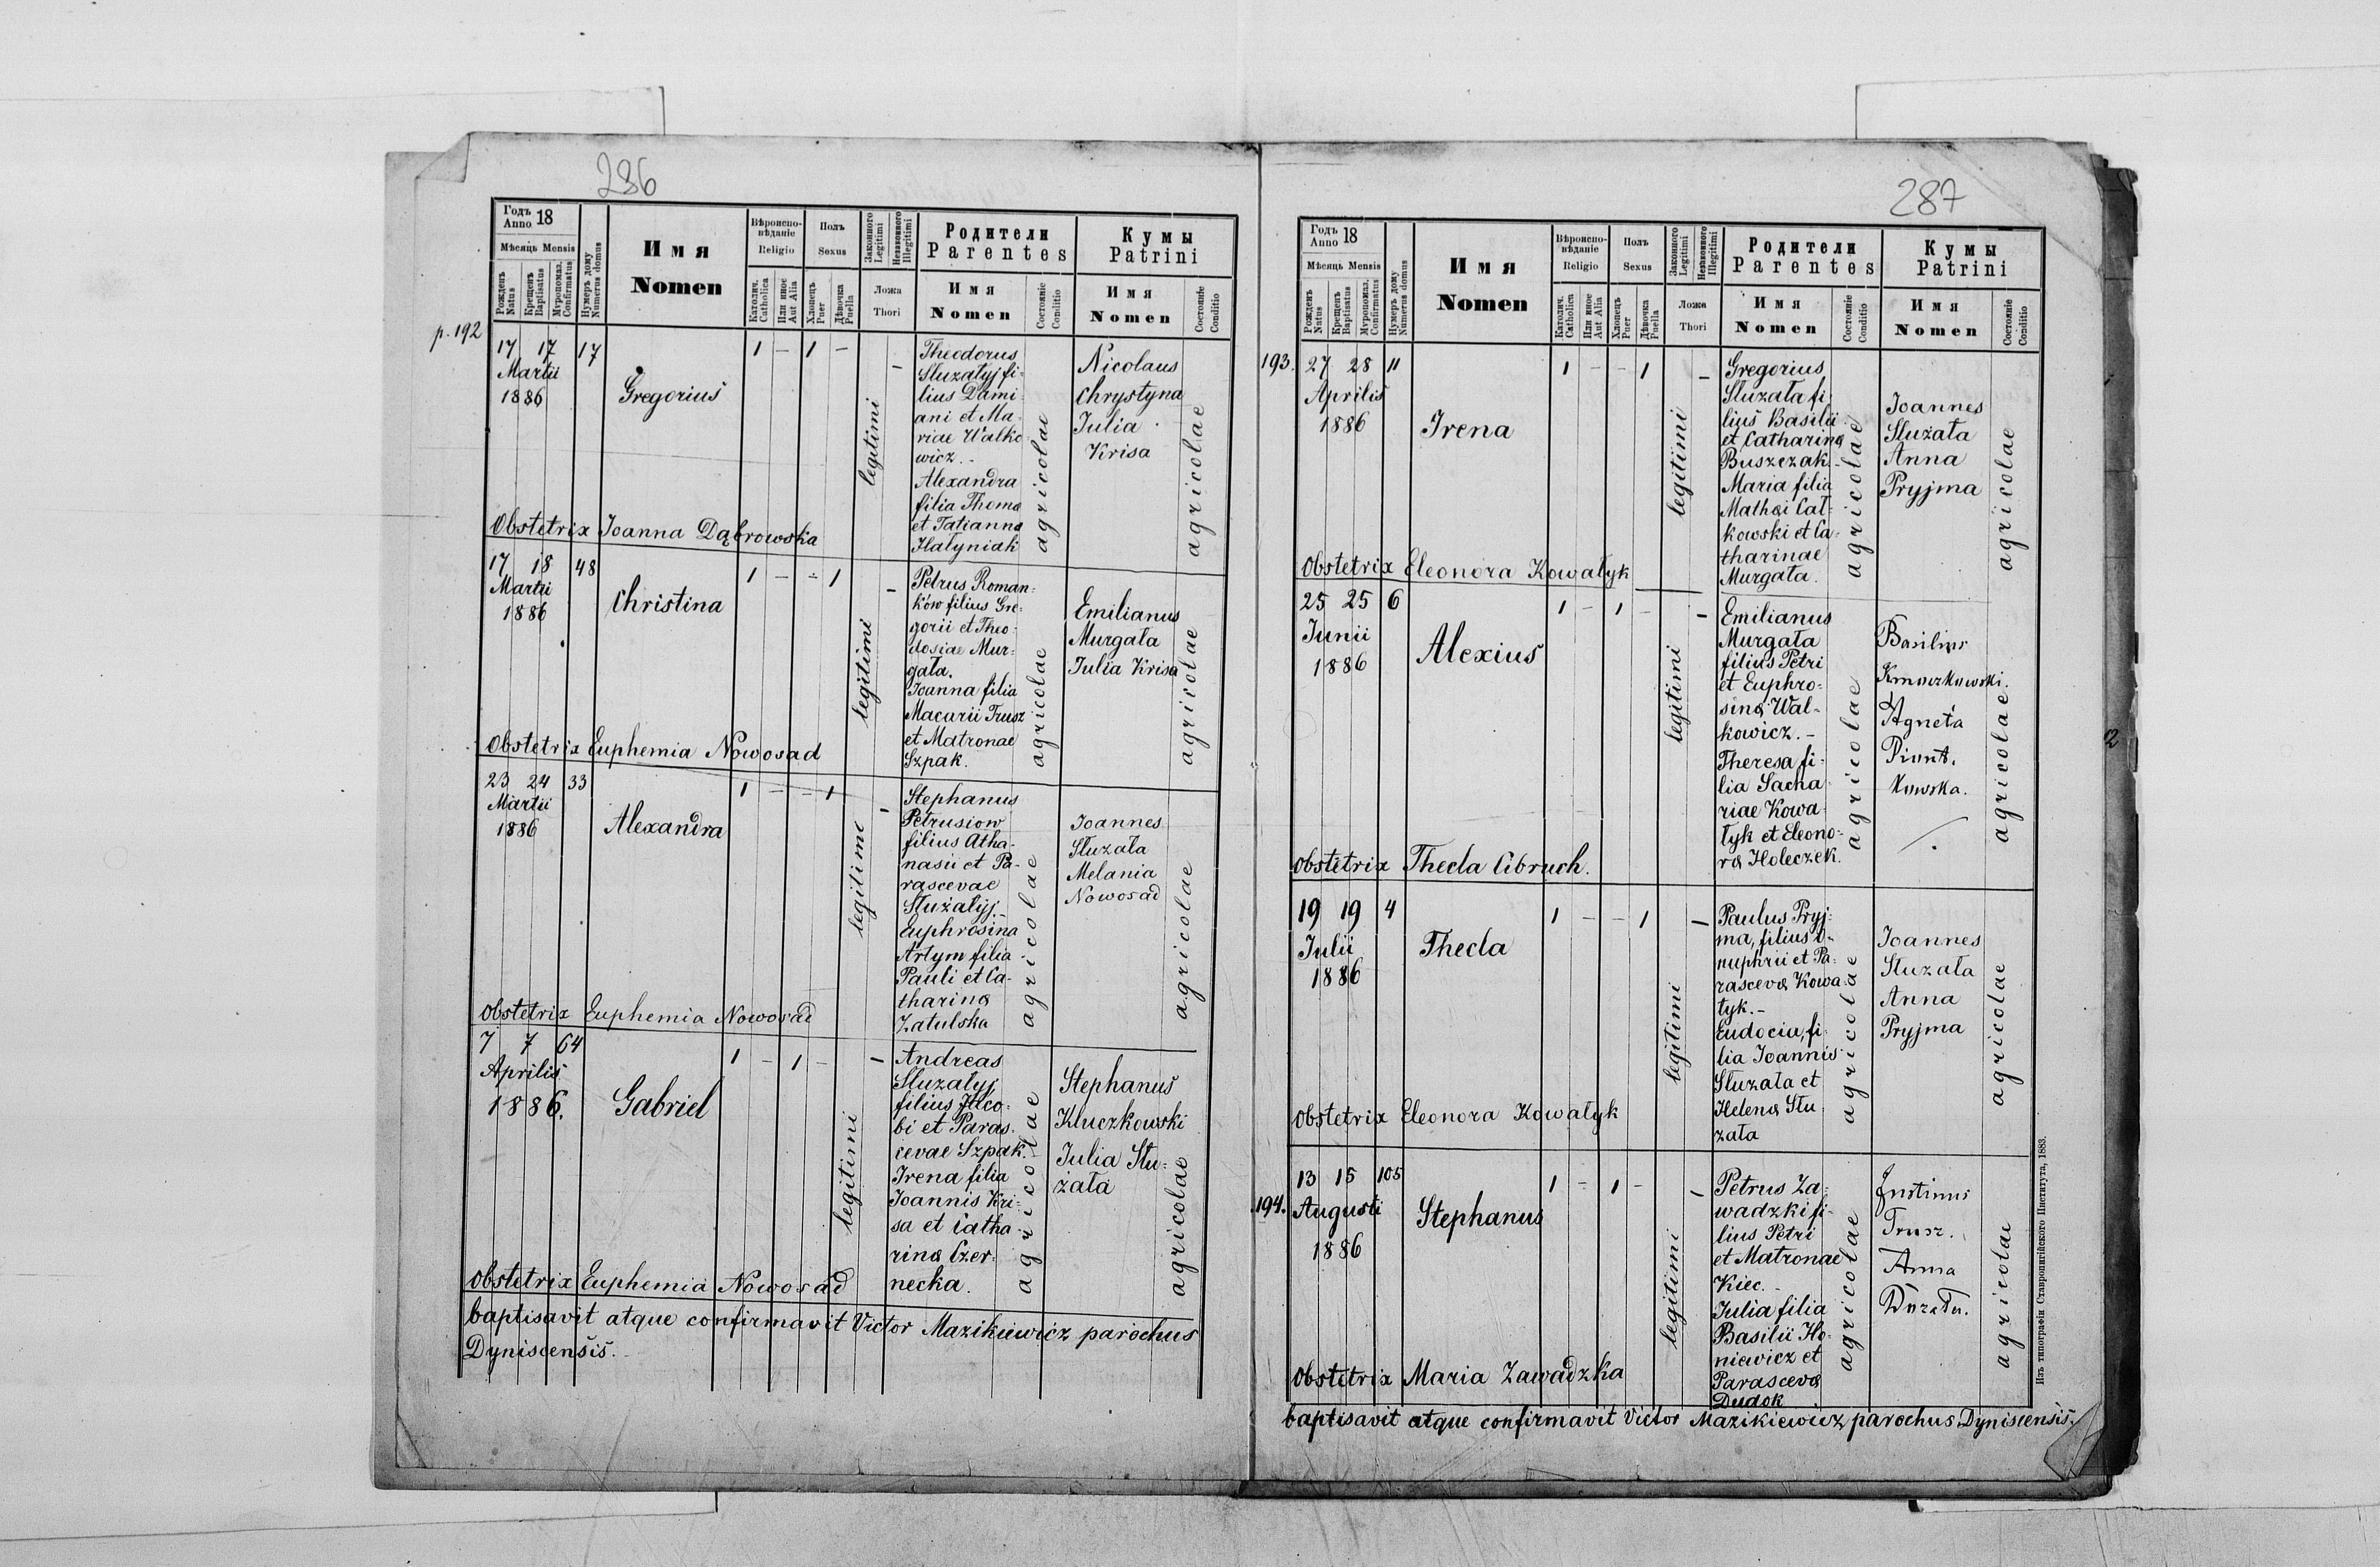 236
Годъ Anno 18
Мѣсяць Mensis
Рожденъ Natus
Крещенъ Baptisatus
Мѵропомаз. Confirmatus
Нумеръ дому Numerus domus
Имя
Nomen
Вѣроиспо-
вѣданіе
Religio
Католич. Catholica
Или иное Aut Alia
Полъ
Sexus
Хлопець Puer
Дѣвочка Puella
Законного Legitimi
Незаконного Illegitimi
Ложа
Thori
Родители
Parentes
Имя
Nomen
Состояніе Conditio
Кумы
Patrini
Имя
Nomen
Состояніе Conditio
p. 192
17 17 17
Martii
1886
Gregorius
1 – 1 –
legitimi
–
Theodorus
Słuzałyj fi-
lius Dami-
ani et Ma-
riae Walko
wicz.-
Alexandra
filia Thomæ
et Tatiannæ
Hałyniak
agricolae
Nicolaus
Chrystyna
Julia
Krisa
agricolae
Obstetrix Joanna Dąbrowska
17 18 48
Martii
1886
Christina
1 – – 1
legitimi
–
Petrus Roman-
ków filius Gre-
gorii et Theo-
dosiae Mur-
gała.
Joanna filia
Macarii Trusz
et Matronae
Szpak.
agricolae
Emilianus
Murgała
Julia Krisa
agricolae
Obstetrix Euphemia Nowosad
23 24 33
Martii
1886
Alexandra
1 – – 1
legitimi
–
Stephanus
Petrusiow
filius Atha-
nasii et Pa-
rascevae
Słuzałyj.-
Euphrosina
Artym filia
Pauli et Ca-
tharinæ
Zatulska
agricolae
Joannes
Słuzała
Melania
Nowosad
agricolae
Obstetrix Euphemia Nowosad
7 7 64
Aprilis
1886.
Gabriel
1 – 1 –
legitimi
–
Andreas
Słuzałyj
filius Jaco-
bi et Paras-
cevae Szpak.-
Irena filia
Joannis Kri-
sa et Catha-
rinæ Czer-
necka.
agricolae
Stephanus
Kluczkowski
Julia Słu-
żała
agricolae
Obstetrix Euphemia Nowosad
baptisavit atque confirmavit Victor Mazikiewicz parochus
Dyniscensis.
287
Годъ Anno 18
Мѣсяць Mensis
Рожденъ Natus
Крещенъ Baptisatus
Мѵропомаз. Confirmatus
Нумеръ дому Numerus domus
Имя
Nomen
Вѣроиспо-
вѣданіе
Religio
Католич. Catholica
Или иное Aut Alia
Полъ
Sexus
Хлопець Puer
Дѣвочка Puella
Законного Legitimi
Незаконного Illegitimi
Ложа
Thori
Родители
Parentes
Имя
Nomen
Состояніе Conditio
Кумы
Patrini
Имя
Nomen
Состояніе Conditio
193.
27 28 11
Aprilis
1886
Irena
1 – – 1
legitimi
–
Gregorius
Słuzała fi-
lius Basilii
et Catharinæ
Buszczak.-
Maria filia
Mathæi Cał-
kowski et Ca-
tharinae
Murgała.
agricolae
Joannes
Słuzała
Anna
Pryjma
agricolae
Obstetrix Eleonora Kowałyk
25 25 6
Junii
1886
Alexius
1 – 1 –
legitimi
–
Emilianus
Murgała
filius Petri
et Euphro-
sinæ Wal-
kowicz.-
Theresa fi-
lia Sacha-
riae Kowa-
łyk et Eleono-
ræ Holeczek.
agricolae
Basilius
Agneta
agricolae
obstetrix Thecla Cibruch.
19 19 4
Julii
1886
Thecla
1 – – 1
legitimi
–
Paulus Pryj-
ma, filius O-
nuphrii et Pa-
rascevæ Kowa-
łyk.-
Eudocia, fi-
lia Joannis
Słuzała et
Helenæ Słu-
zała
agricolae
Joannes
Słuzała
Anna
Pryjma
agricolae
obstetrix Eleonora Kowałyk
194.
13 15 105
Augusti
1886
Stephanus
1 – 1 –
legitimi
–
Petrus Za-
wadzki fi-
lius Petri
et Matronae
Kiec.-
Julia filia
Basilii Ho-
niewicz et
Parascevæ
Dudok
agricolae
Justinus
Trusz.
Anna
agricolae
Obstetrix Maria Zawadzka
baptisavit atque confirmavit Victor Mazikiewicz parochus Dyniscensis.
Изъ типографіи Ставропигійского Института, 1883.